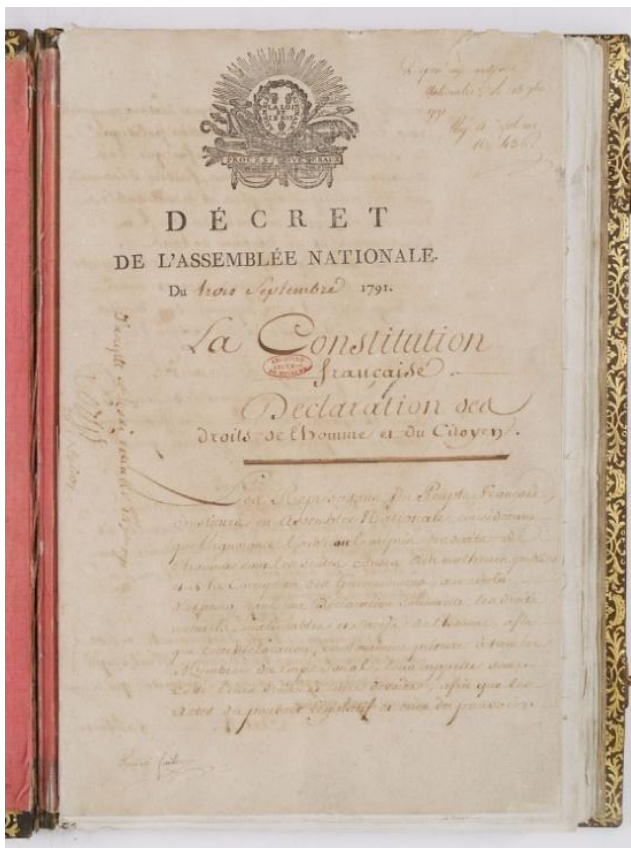 LA LOI
ET
LE ROI
PROCÈS VERBAUX
DÉCRET
DE L'ASSEMBLÉE NATIONALE.
Du trois Septembre 1791.
La Constitution
française.
Déclaration des
droits de l'homme et du Citoyen.
Les Représentans du Peuple français
constitués en Assemblée Nationale, considérant
que l'ignorance, l'oubli ou le mépris des droits de
l'homme sont les seules causes des malheurs publics
et de la Corruption des Gouvernemens, ont résolu
d'exposer dans une Déclaration solennelle, les droits
naturels, inaliénables et sacrés de l'homme, afin
que cette déclaration, constamment présente à tous les
Membres du corps social, leur rappelle sans
cesse leurs droits et leurs devoirs; afin que les
actes du pouvoir législatif et ceux du pouvoir